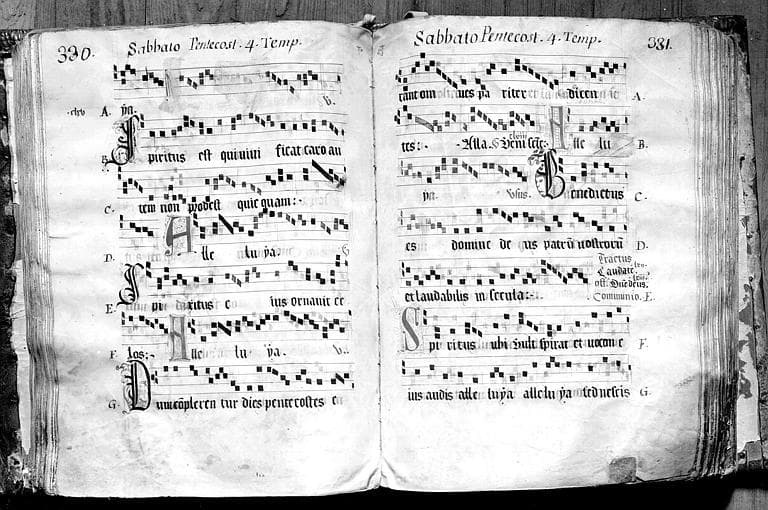 330.
Sabbato Pentecost. 4. Temp.
A. ya. V.
B. Spiritus est qui vivi ficat caro au
C. tem non podest quic quam:-
D. Alle lu ya.
E. Spi ritus e ius ornavit ce
F. los:- Alle lu ya. V.
G. Dum cōpleren tur dies pente costes e
Sabbato Pentecost. 4. Temp.
381.
tant om ques pa riter et dicen A.
tes:- Alla. Veni Alle lu B.
ya. Vsus. Benedictus C.
es domine de us patrū nostrorū D.
et laudabilis in secula:-
Tractus
Laudate.
off.
Communio. E.
Spi ritus ubi vult spirat et vocem e F.
ius audis alle lu ya alle lu ya sed nescis G.